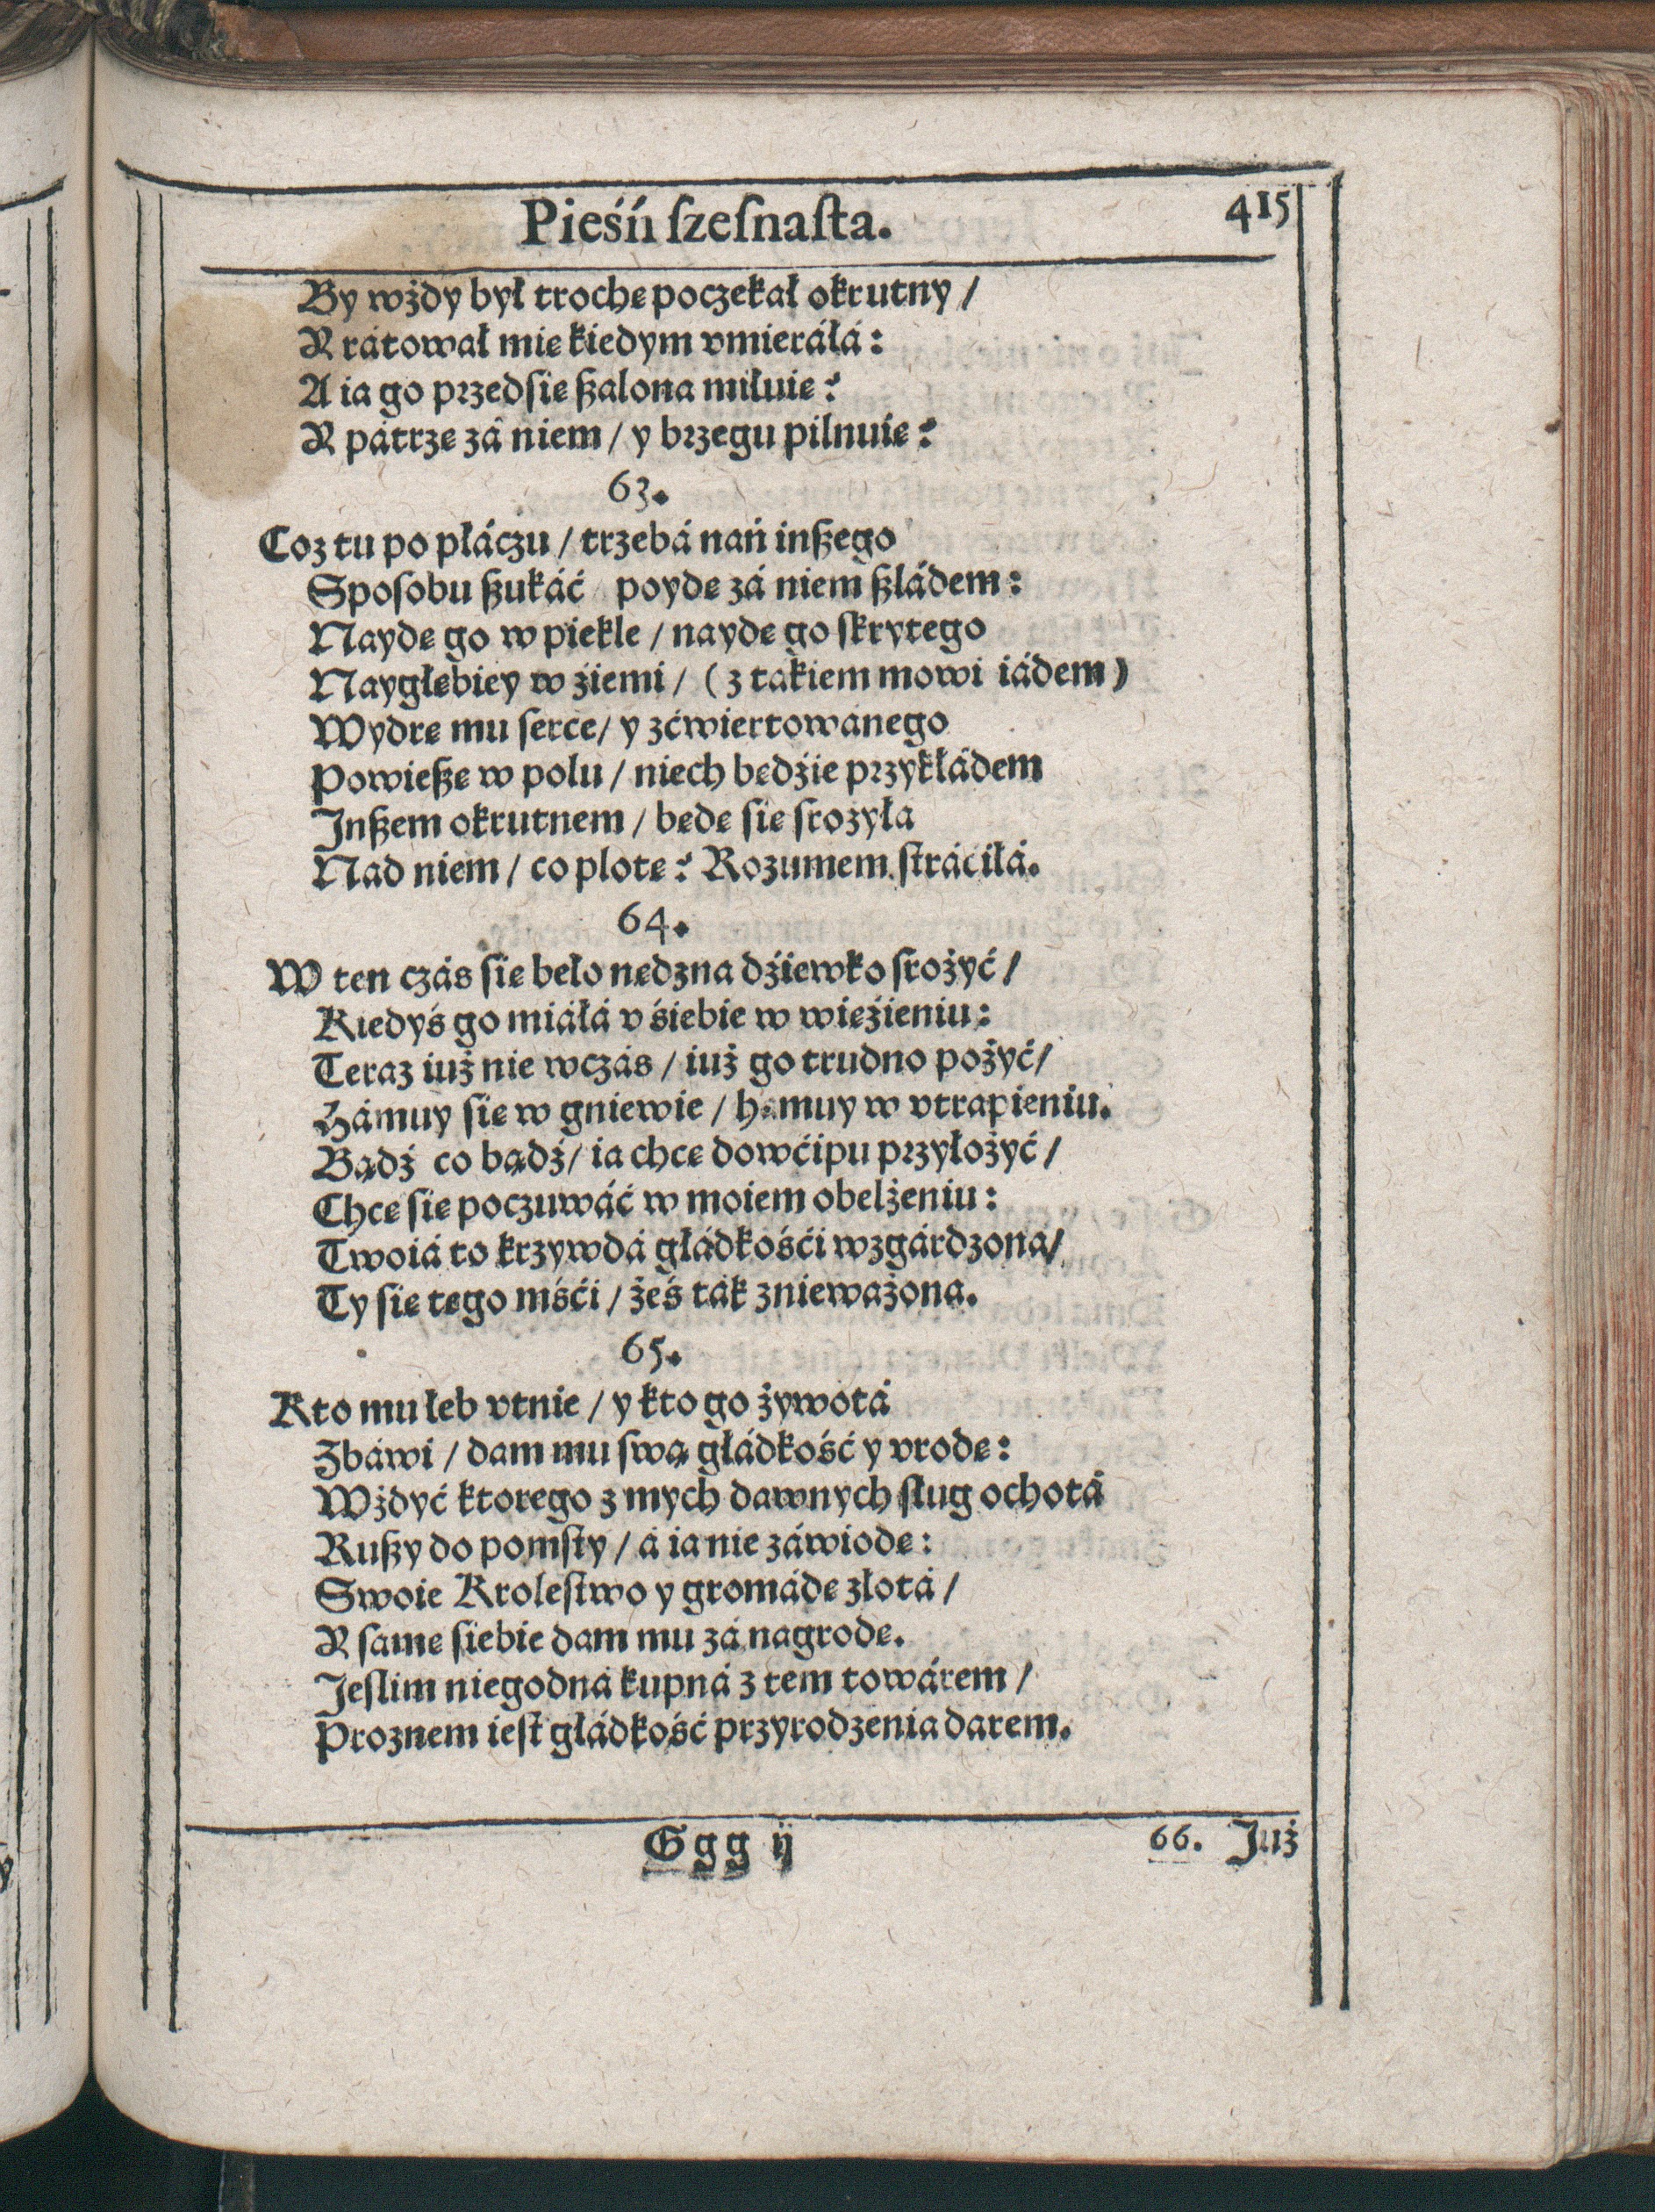 Pieśń ſzeſnaſta.
415
By wżdy był trochę poczekał okrutny /
Y rátował mię kiedym vmieráłá:
A ia go przedſię ßalona miłuię?
Y pátrzę zá niem / y brzegu pilnuię?
63.
Coz tu po płáczu / trzebá nań inßego
Spoſobu ßukáć poydę zá niem ßládem:
Naydę go w piekle / naydę go ſkrytego
Naygłębiey w źiemi / (z tákiem mowi iádem)
Wydrę mu ſerce / y zćwiertowánego
Powießę w polu / niech będźie przykłádem
Inßem okrutnem / będę ſię ſrożyła
Nad niem / co plotę? Rozumem ſtráciłá.
64.
W ten czás ſię beło nędzna dźiewko ſrożyć /
Kiedyś go miáłá v śiebie w więźieniu:
Teraz iuż nie wczás / iuż go trudno pożyć /
Hámuy ſię w gniewie / hamuy w vtrapieniu.
Bądź co bądź / ia chcę dowćipu przyłożyć /
Chcę ſię poczuwáć w moiem obelżeniu:
Twoiá to krzywdá głádkośći wzgárdzona /
Ty ſię tego mśći / żeś ták znieważona.
65.
Kto mu łeb vtnie / y kto go żywotá
Zbáwi / dam mu ſwą głádkość y vrodę:
Wżdyć ktorego z mych dawnych ſług ochotá
Rußy do pomſty / á ia nie záwiodę:
Swoie Kroleſtwo y gromádę złotá /
Y ſamę ſiebie dam mu zá nagrodę.
Ieſlim niegodná kupná z tem towárem /
Proznem ieſt głádkość przyrodzenia darem.
Ggg ij
66. Iuż